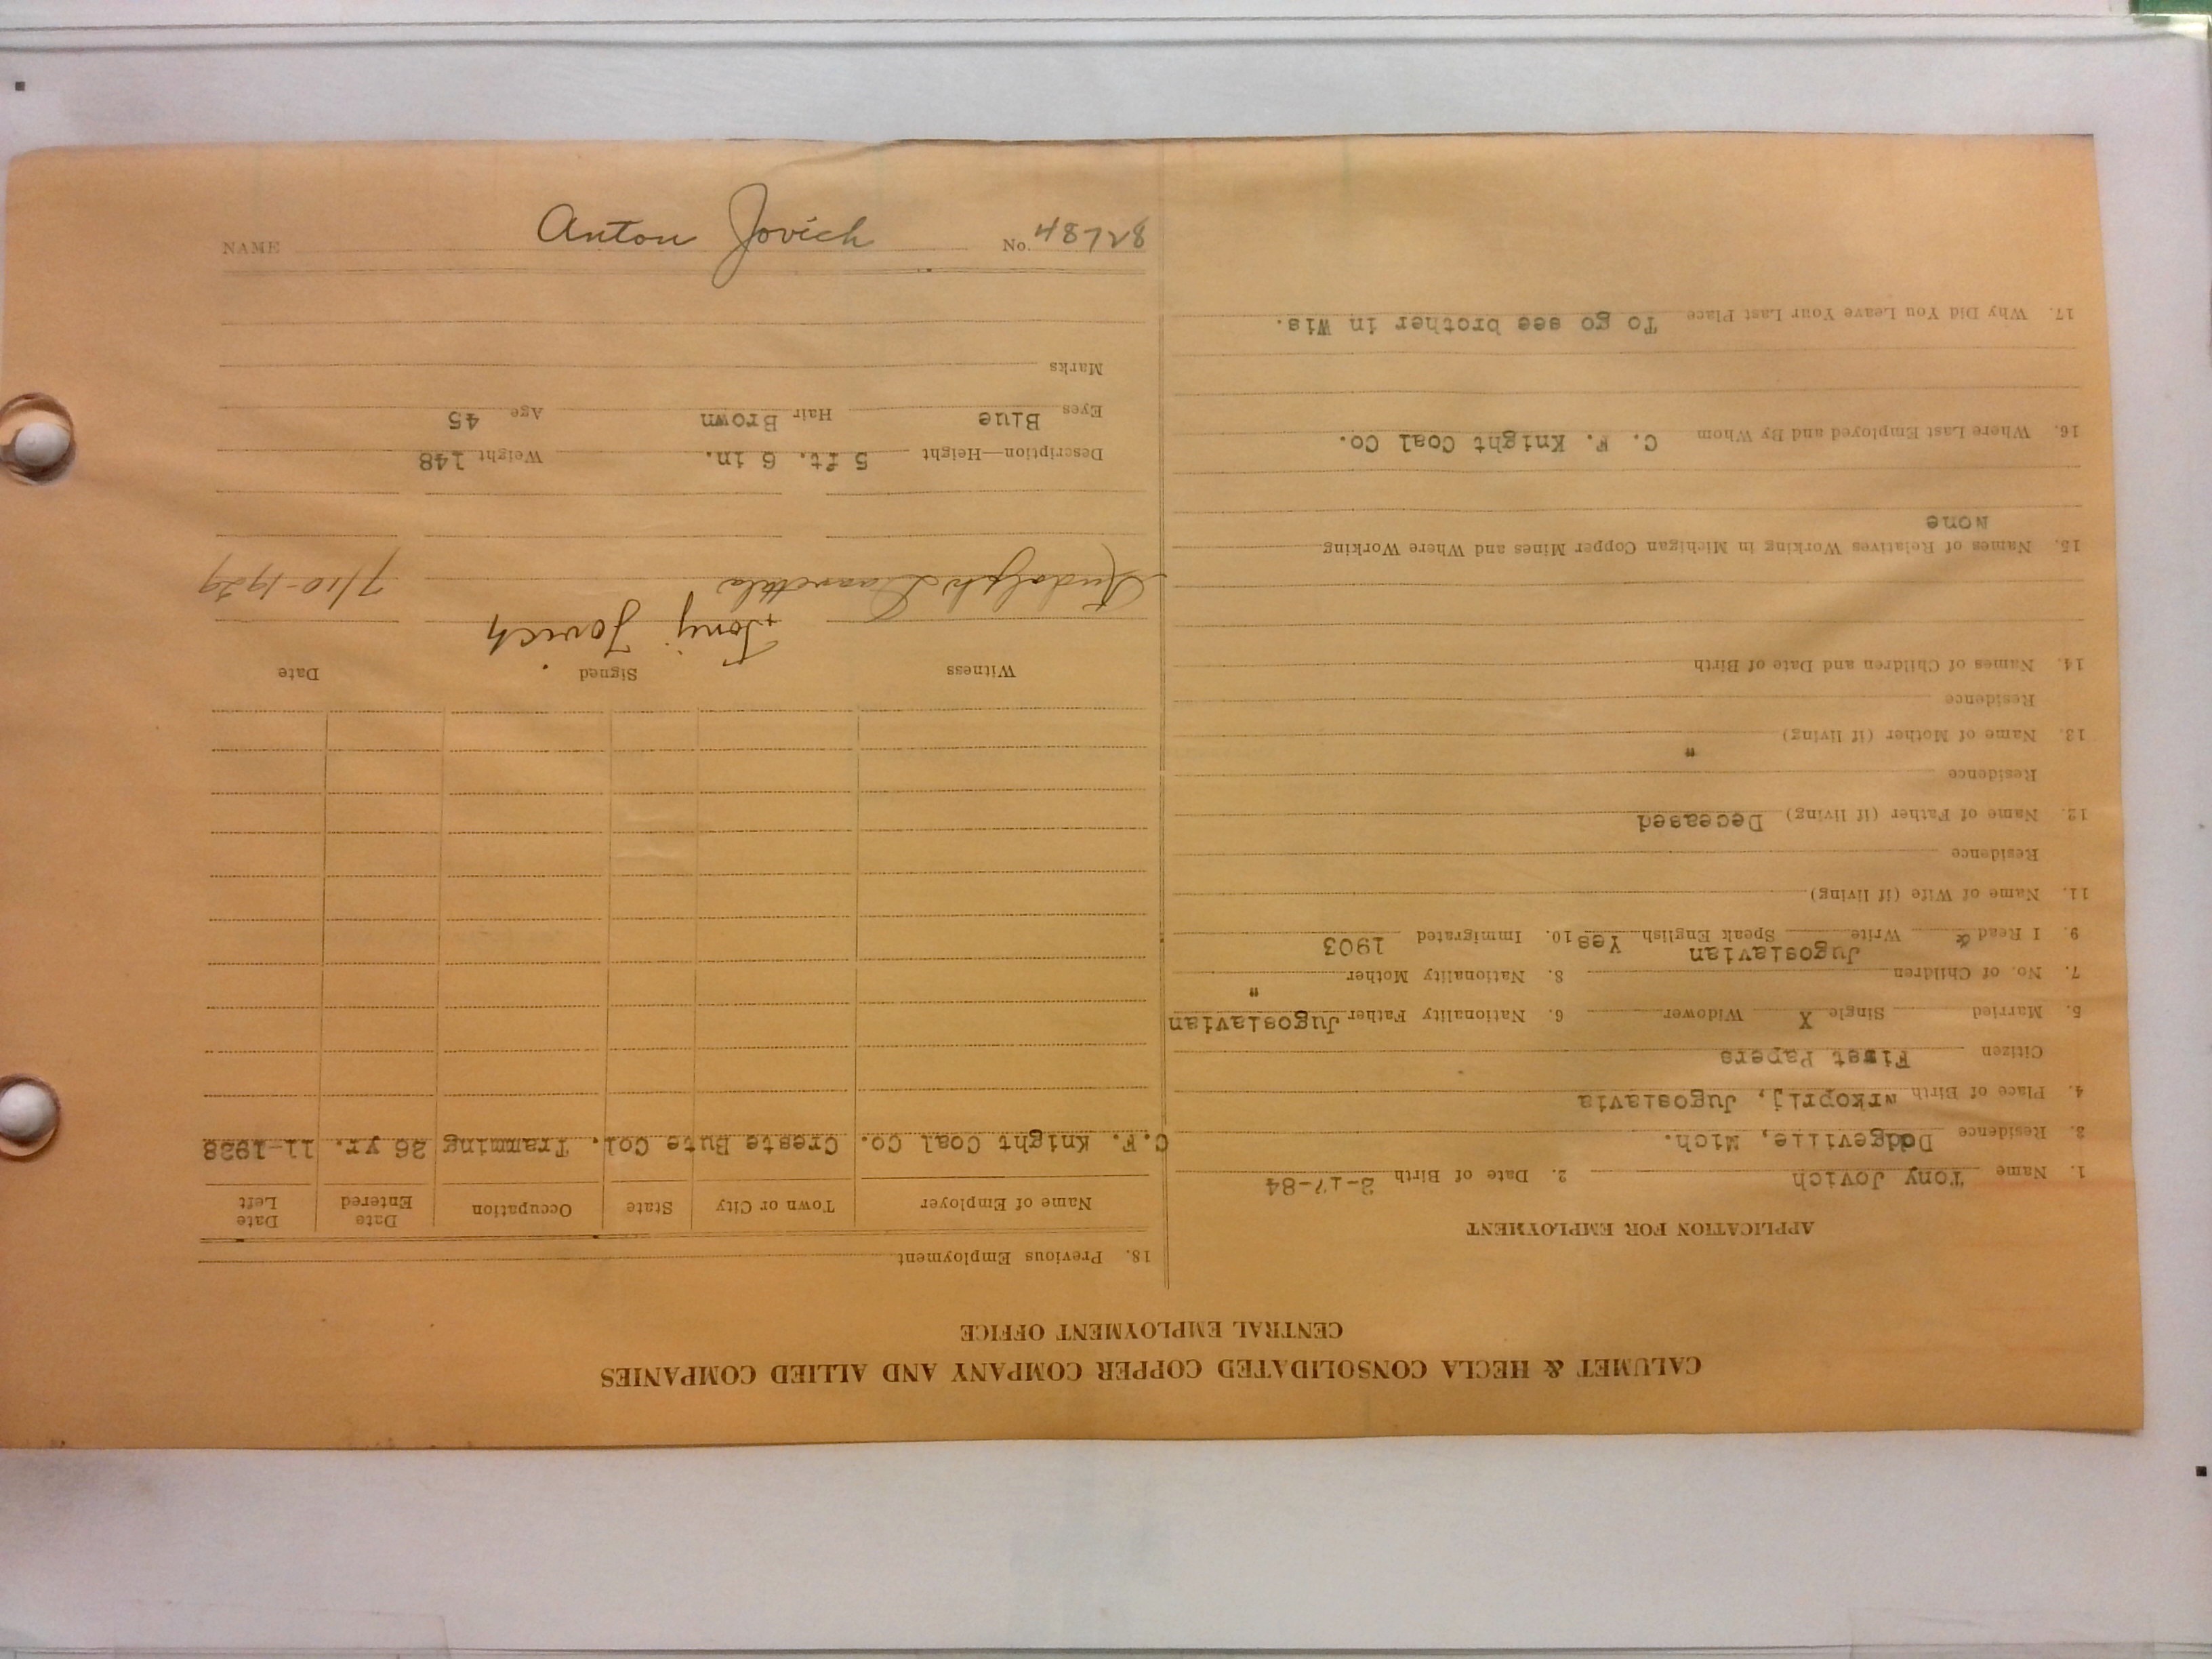 NAME Anton Jovich No. 48728
CALUMET & HECLA CONSOLIDATED COPPER COMPANY AND ALLIED COMPANIES
CENTRAL EMPLOYMENT OFFICE
APPLICATION FOR EMPLOYMENT
1. Name Tony Jovich 2. Date of Birth 2-17-84
3. Residence Dodgeville, Mich.
4. Place of Birth Wrkoprij, Jugoslavia
Citizen First Papers
5. Married Single X Widower 6. Nationality Father Jugoslavian
7. No. of Children 8. Nationality Mother "
Jugoslavian
9. I Read & Write Speak English Yes 10. Immigrated 1903
11. Name of Wife (if living)
Residence
12. Name of Father (if living) Deceased
Residence
13. Name of Mother (if living) "
Residence
14. Names of Children and Date of Birth
15. Names of Relatives Working in Michigan Copper Mines and Where Working
None
16. Where Last Employed and By Whom C. F. Knight Coal Co.
17. Why Did You Leave Your Last Place To go see brother in Wis.
18. Previous Employment
Name of Employer Town or City State Occupation Date Entered Date Left
C.F. Knight Coal Co. Creste Bute Col. Tramming 26 yr. 11-1928
Witness Signed Date
Tony Jovich
Rudolph 7/10-1929
Description—Height 5 ft. 6 in. Weight 148
Eyes Blue Hair Brown Age 45
Marks